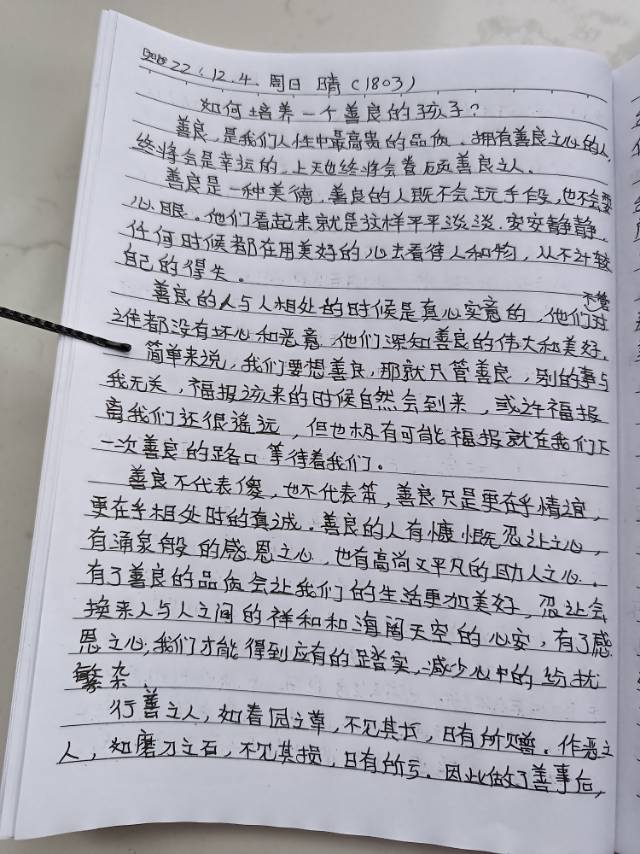 2022.12.4.周日 晴(1803)
如何培养一个善良的孩子?
善良,是我们人性中最高贵的品质。拥有善良之心的人,
终将会是幸运的,上天也终将会眷顾善良之人。
善良是一种美德,善良的人既不会玩手段,也不会耍
心眼。他们看起来就是这样平平淡淡,安安静静,
任何时候都在用美好的心去看待人和物,从不计较
自己的得失。
善良的人与人相处的时候是真心实意的,他们对
之佳都没有坏心和恶意,他们深知善良的伟大和美好。
简单来说,我们要想善良,那就只管善良,别的事与
我无关,福报该来的时候自然会到来,或许福报
离我们还很遥远,但也极有可能福报就在我们下
一次善良的路口等待着我们。
善良不代表傻,也不代表笨,善良只是更在乎情谊,
更在乎相处时的真诚。善良的人有慷慨忍让之心,
有涌泉般的感恩之心,也有高尚又平凡的助人之心。
有了善良的品质会让我们的生活更加美好,忍让会
换来人与人之间的祥和和海阔天空的心安,有了感
恩之心,我们才能得到应有的踏实,减少心中的纷扰
繁杂。
行善之人,如春园之草,不见其长,日有所增。作恶之
人,如磨刀之石,不见其损,日有所亏。因此做了善事后,